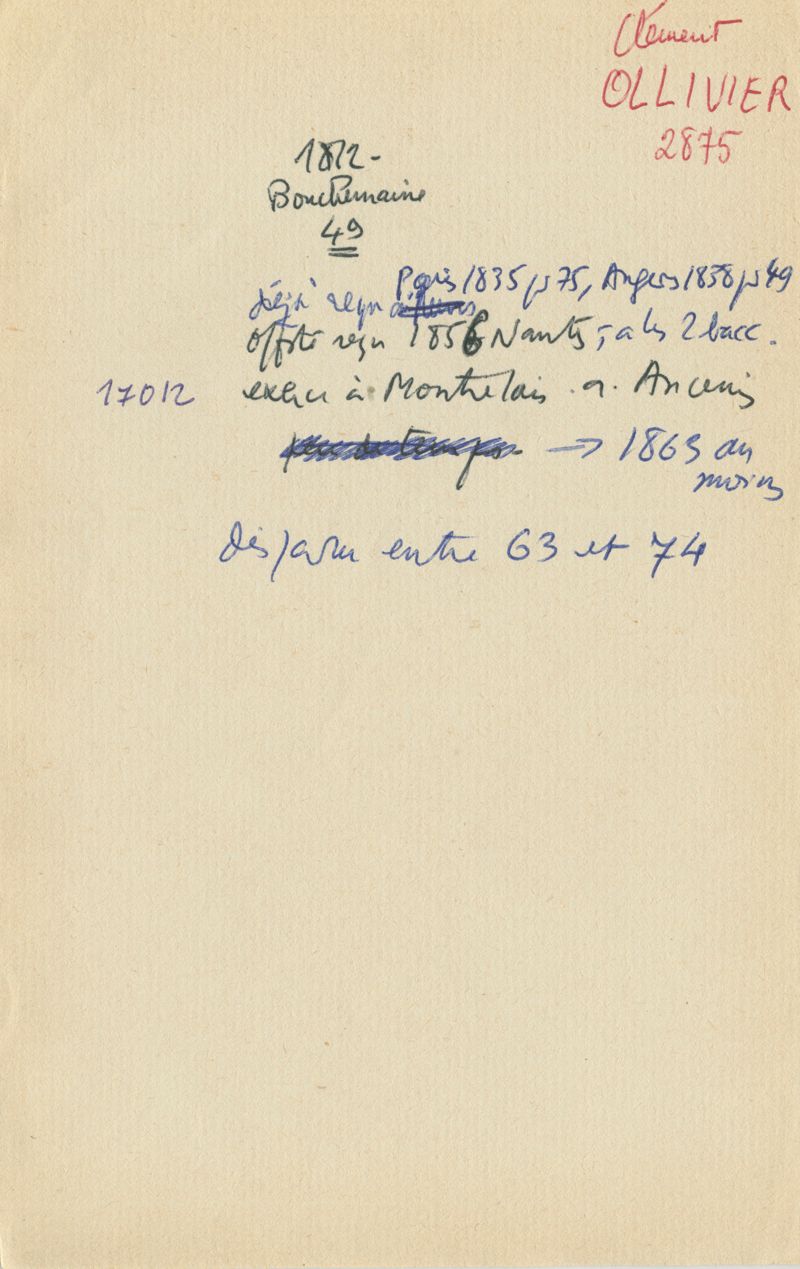 Clément
OLLIVIER
2875
1812-
Bouchemaine
49
Paris 1835 ps 75, Angers 1838 ps 49
déjà reçu
offste reçu 1856 Nantes, a les 2 bacc.
17012 exerce à Montrelais . a. Ancenis
→ 1863 au
moins
disparu entre 63 et 74